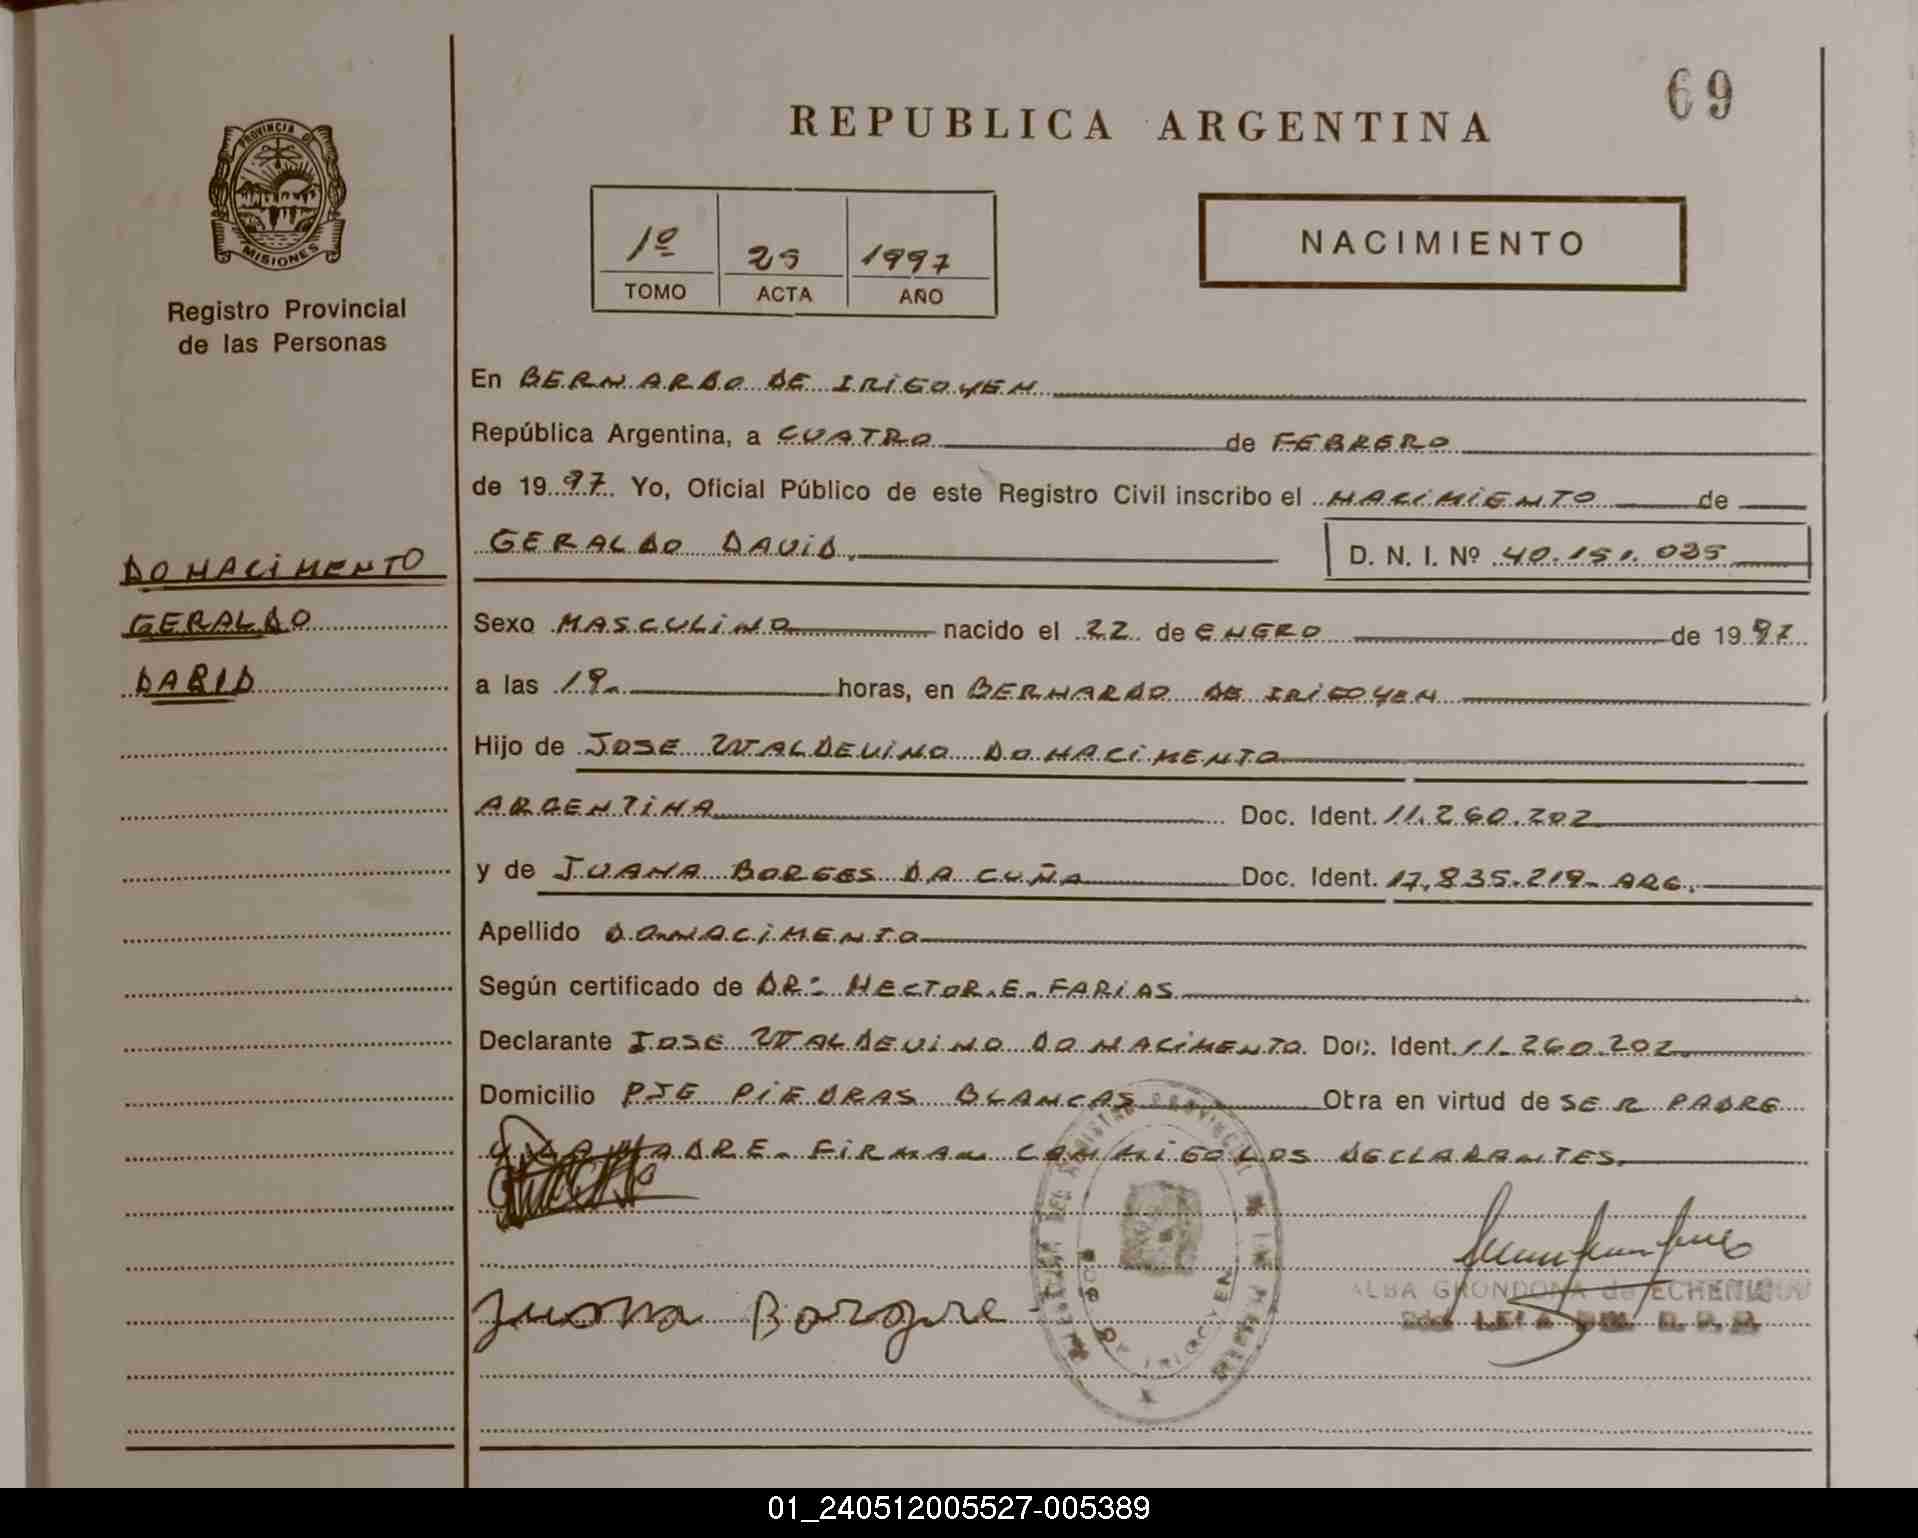 69
REPUBLICA ARGENTINA
PROVINCIA DE
MISIONES
1º 25 1997
TOMO ACTA AÑO
NACIMIENTO
Registro Provincial
de las Personas
En BERNARDO DE IRIGOYEN
República Argentina, a CUATRO de FEBRERO
de 1997. Yo, Oficial Público de este Registro Civil inscribo el NACIMIENTO de
GERALDO DAVID.
D. N. I. Nº 40.151.035
DO NACIMENTO
GERALDO
DABID
Sexo MASCULINO nacido el 22 de ENERO de 1997
a las 19. horas, en BERNARDO DE IRIGOYEN
Hijo de JOSE WALDEVINO DO NACIMENTO
ARGENTINA Doc. Ident. 11.260.202
y de JUANA BORGES DA CUÑA Doc. Ident. 17.835.219- ARG.
Apellido DO NACIMENTO
Según certificado de DR: HECTOR.E. FARIAS
Declarante JOSE WALDEVINO DO NACIMENTO. Doc. Ident. 11.260.202
Domicilio PJE PIEDRAS BLANCAS Obra en virtud de SER PADRE
Y LA MADRE- FIRMAN CONMIGO LOS DECLARANTES
Juana Borgre
ALBA GRONDONA de ECHENIQUE
DE IRIGOYEN
01_240512005527-005389